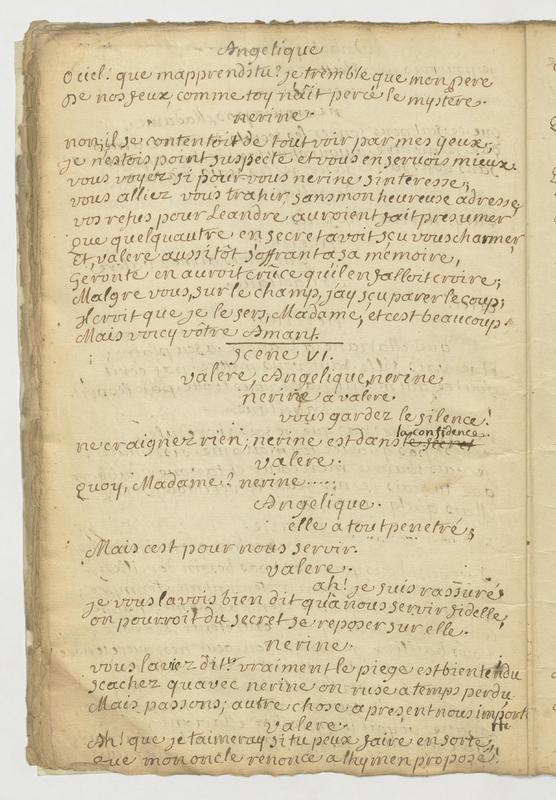 Angelique
O ciel! que mapprendstu? je tremble que mon pere
De nos feux, comme toy nait percé le mystere.
nerine.
non, il se contentoit de tout voir par mes yeux,
je nestois point suspecte et vous en servois mieux.
vous voyez si pour vous nerine sinteresse,
vous alliez vous trahir, sans mon heureuse adresse,
vos refus pour Leandre auroient fait presumer
que quelquautre en secret avoit sçu vous charmer,
Et, valere aussitôt soffrant a sa memoire,
Geronte en auroit crû ce quil en falloit croire;
Malgre vous, sur le champ, jay sçu parer le coup;
il croit que je le sers, Madame, et cest beaucoup.
Mais voicy vôtre Amant.
Scene VI.
valere, Angelique, nerine
nerine a valere.
vous gardez le silence!
la confidence.
ne craignez rien; nerine est dans le secret
valere.
quoy, Madame? nerine.....
Angelique.
elle a tout penetré;
Mais cest pour nous servir.
valere.
ah! je suis rassuré,
je vous lavois bien dit qua nous servir fidelle,
on pourroit du secret se reposer sur elle.
nerine.
vous laviez dit? vraiment le piege est bien tendu
scachez quavec nerine on ruse a temps perdu.
Mais passons; autre chose a present nous importe
valere.
Ah! que je taimeray si tu peux faire en sorte,
que mon oncle renonce a lhymen proposé!